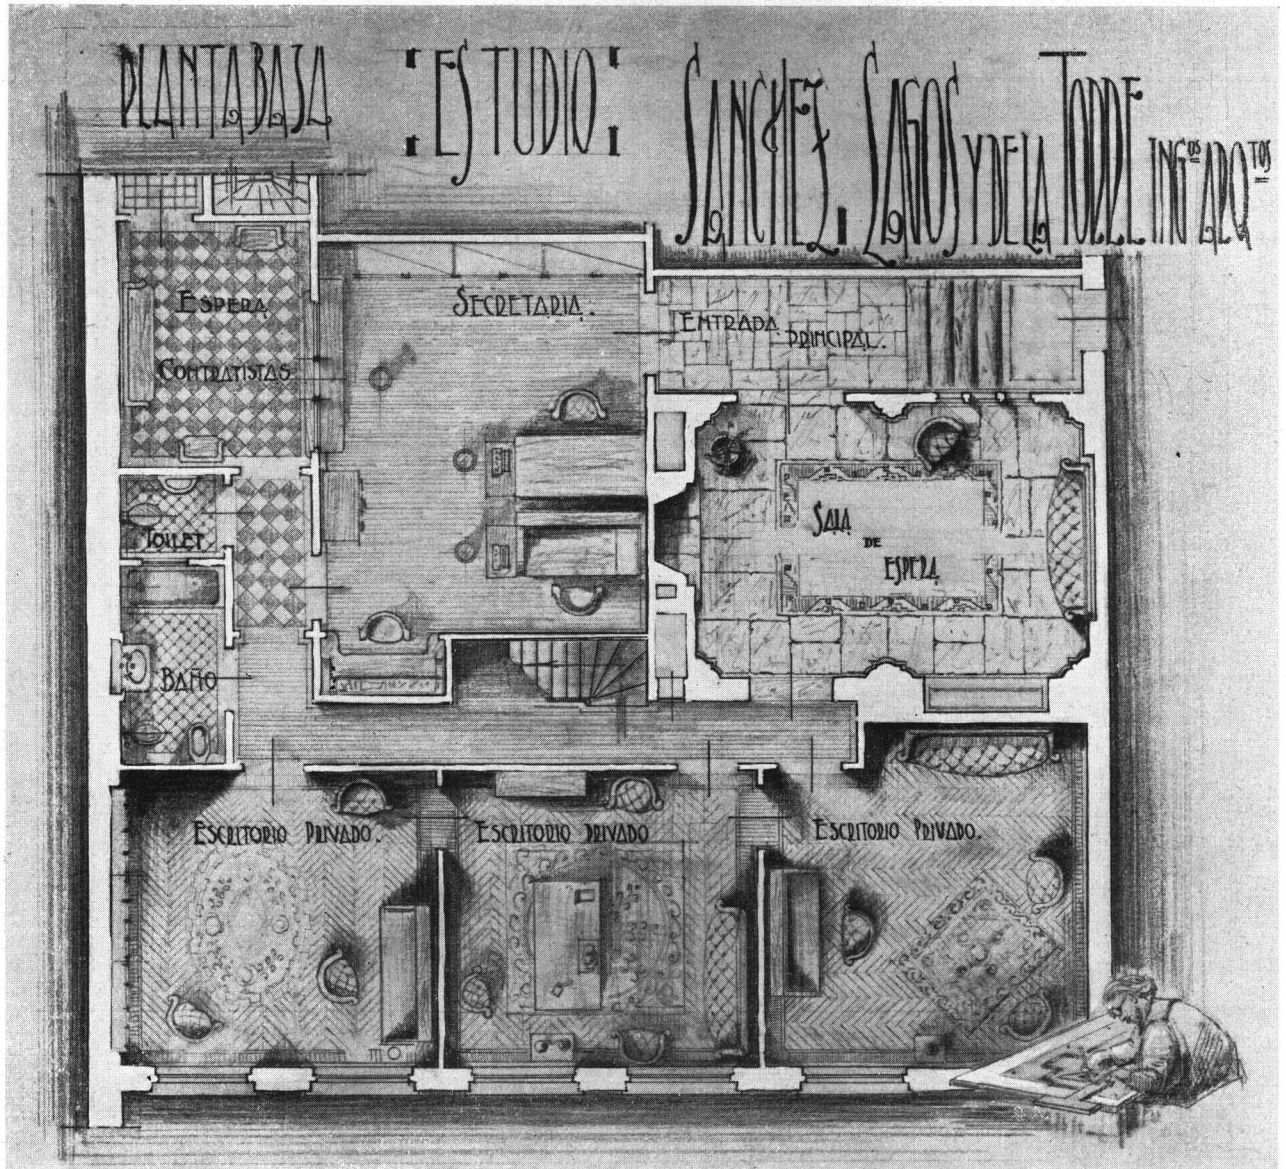 PLANTA BAJA
ESTUDIO
SANCHEZ, LAGOS Y DE LA TORRE ING.OS ARQTOS
ESPERA
CONTRATISTAS
SECRETARIA.
ENTRADA
PRINCIPAL.
TOILET
BAÑO
SALA
DE
ESPERA
ESCRITORIO PRIVADO.
ESCRITORIO PRIVADO
ESCRITORIO PRIVADO.